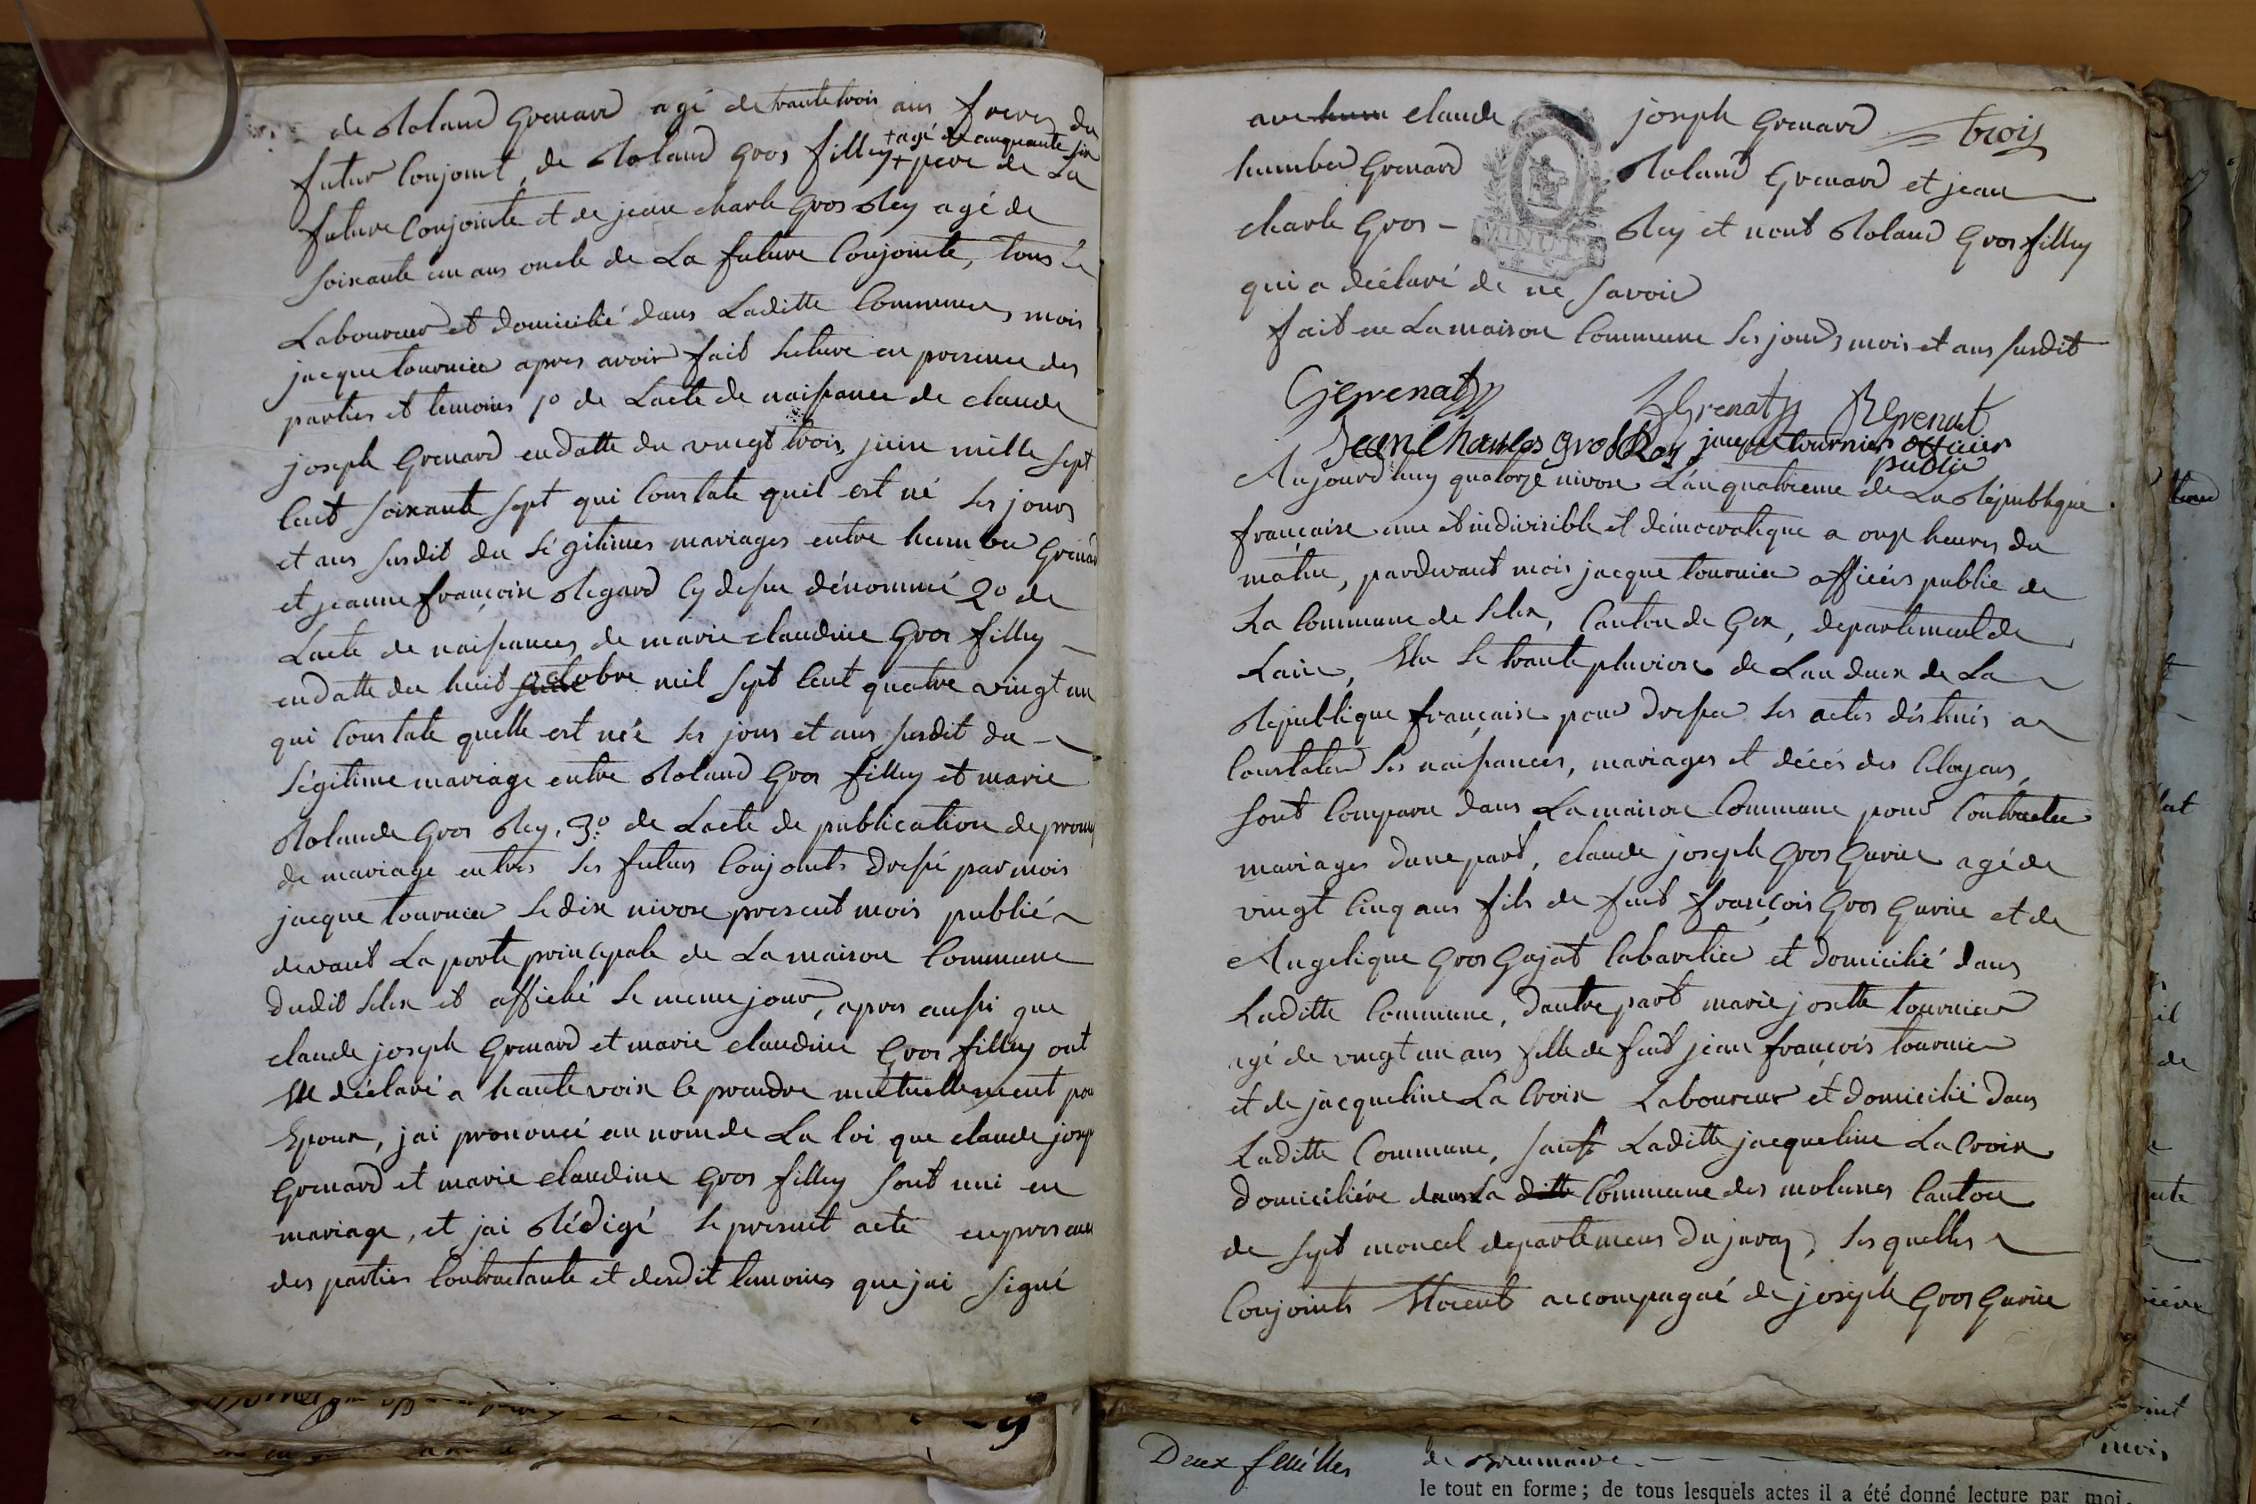 de Roland Grenard agé de trante trois ans freres du
futur Conjoint, de Roland Gros fillex + pere de La
+ agé de cinquante six
future Conjointe et de jean charle Gros Rey agé de
soixante un ans oncle de La future Conjointe, tous
Laboureur et domicilié dans Laditte Commune, mois
jacque tournier apres avoir fait Lecture en presence des
parties et temoins 1o de Lacte de naissance de claude
joseph Grenard en datte du vingt trois juin mille sept
Cent soixante sept qui Constate quil est né les jours
et ans susdit du Légitimes mariages entre humber Grenard
et jeanne françoise Regard Cy dessu dénommé 2o de
Lacte de naissances de marie claudine Gros fillex
en datte du huit octobre mil sept Cent quatre vingt un
qui Constate quelle est née les jours et ans susdit du
Légitime mariage entre Roland Gros fillex et marie
Rolande Gros Rey, 3o de Lacte de publication de prom
de mariage entres les futurs Conjoints dressé par mois
jacque tournier Le dix nivose present mois publié
devant La porte principale de La maison Commune
dudit Lelex et affiché Le meme jour, apres aussi que
claude joseph Grenard et marie claudine Gros fillex ont
Ete déclaré a haute voix ce prendre mutuellement pou
Epoux, jai prononcé au nom de La loi que claude josep
Grenard et marie claudine Gros fillex sont uni en
mariage, et jai Rédigé Le present acte en presence
des parties Contractante et desdit temoins que jai signé
avec hum claude joseph Grenard trois
humber Grenard Roland Grenard et jean
charle Gros - Rey et nont Roland Gros fillex
qui a déclaré de ne savoir
fait en La maison Commune Les jours, mois et ans susdit
CJGrenat HGrenat RGrenat
Jean Charles Gros Rey jacque tournier officier
public
Aujourdhuy quatorze nivose Lan quatrieme de La Républiqué
française une et indivisible et démocratique a onze heures du
matin, pardevant mois jacque tournier officiers public de
La Commune de Lelex, Canton de Gex, departement de
Lain, Elu le trante pluviose de Lan deux de La
République française pour dresser Les actes déstinés a
Constater Les naissances, mariages et décés des Citoyens,
sont Comparu dans La maison Commune pour Contracter
mariages dune part, claude joseph Gros Gurin agé de
vingt Cinq ans fils de fut françois Gros Gurin et de
Angelique Gros Gojat Cabaretier et domicilié dans
Laditte Commune, dautre part marie josette tournier
agé de vingt un ans fille de fut jean françois tournier
et de jacqueline La Croix Laboureur et domicilié dans
Laditte Commune, sauf Laditte jacqueline La Croix
domiciliére dans La ditte Commune des molunes Canton
de sept moncel departemens du jura, Les quelles
Conjoints Etoient accompagné de joseph Gros Gurin
Deux feuilles
de Brumaire
le tout en forme ; de tous lesquels actes il a été donné lecture par moi.